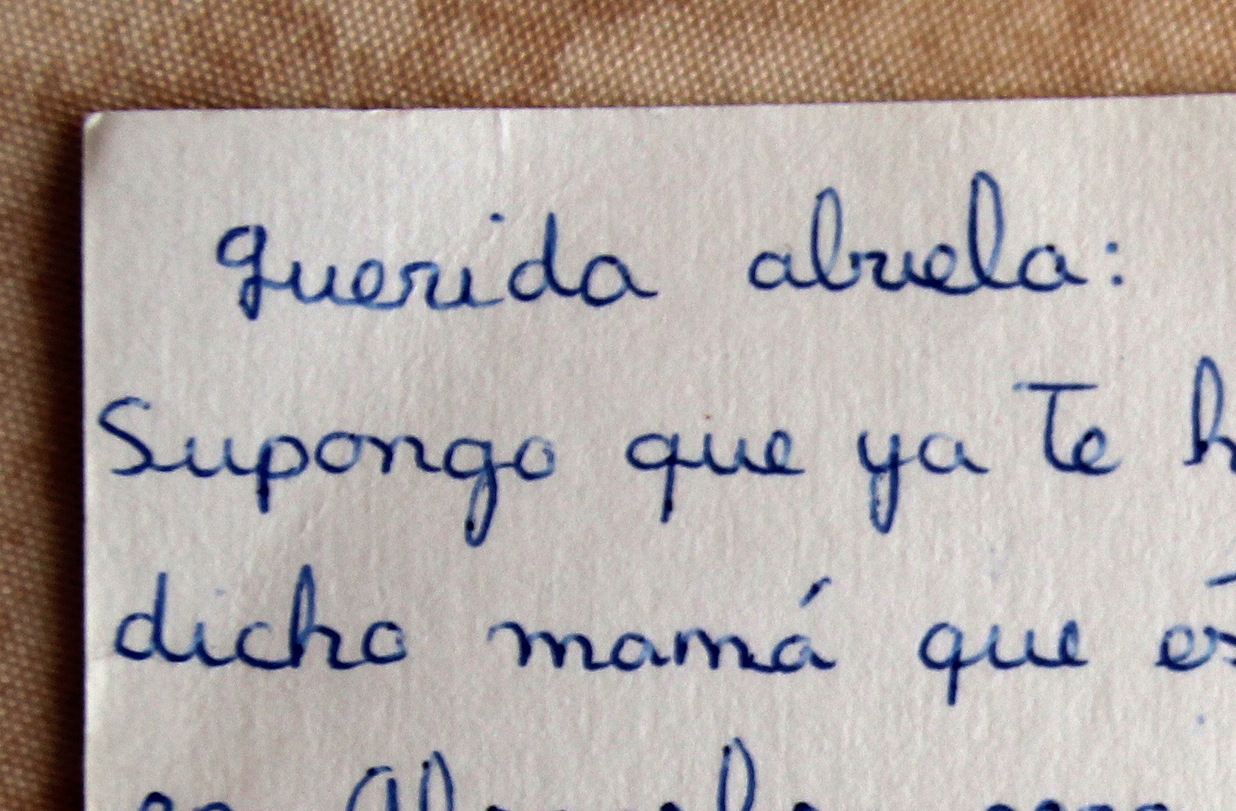 Querida abuela:
Supongo que ya te h
dicho mamá que es